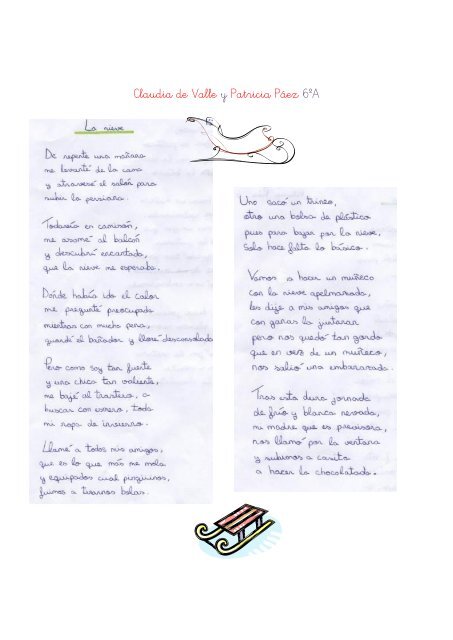 Claudia de Valle y Patricia Páez 6ºA
La nieve
De repente una mañana
me levanté de la cama
y atravesé el salón para
subir la persiana.
Todavía en camisón,
me asomé al balcón
y descubrí encantada,
que la nieve me esperaba.
Dónde había ido el calor
me pregunté preocupada
mientras con mucha pena,
guardé el bañador y lloré desconsolada
Pero como soy tan fuerte
y una chica tan valiente,
me bajé al trastero, a
buscar con esmero, toda
mi ropa de invierno.
Llamé a todos mis amigos,
que es lo que más me mola
y equipados cual pingüinos,
fuimos a tirarnos bolas.
Uno sacó un trineo,
otro una bolsa de plástico
pues para bajar por la nieve,
solo hace falta lo básico.
Vamos a hacer un muñeco
con la nieve apelmazada,
les dije a mis amigos que
con ganas la juntaran
pero nos quedó tan gordo
que en vez de un muñeco,
nos salió una embarazada.
Tras esta dura jornada
de frío y blanca nevada,
mi madre que es precavida,
nos llamó por la ventana
y subimos a casita
a hacer la chocolatada.